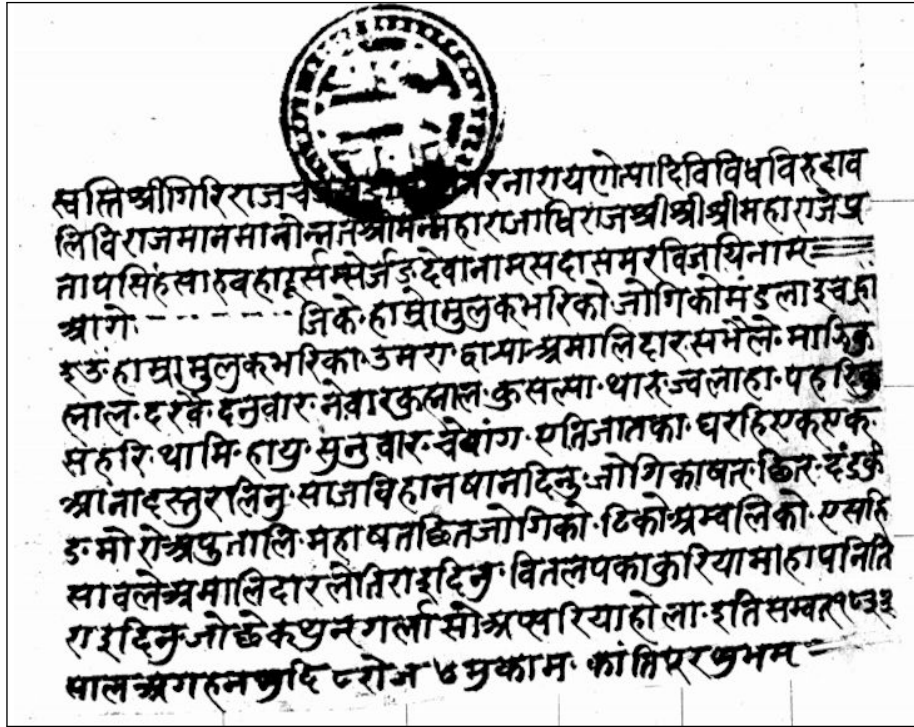 स्वस्ति श्रीगिरिराजच नरनारायणेत्यादिविविधविरुदाव
लिविराजमानमानोन्नतश्रीमन्महाराजाधिराजश्रीश्रीश्रीमहाराजप्र
तापसिंहसाहवहादूर्सम्सेर्जङ्देवानामसदासमरविजयिनाम
आगे जिके हाम्रामुलुकभरिको जोगिकोमंडलाइ
हाम्रामुलुकभरिका उमरा द्वार्या अमालिदार सभैले माझि
दरवै दनुवार नेवार कुसल्या थारु ज्वलाहा पहरि
थामि हायु सुनुवार चेपांग एतिजातका घरहि एकएक
आनादस्तुरलिनु साजविहानषानदिनु जोगिकाषत छित दंड
मोरोअपुतालि महाषतछितजोगिको टिकोअम्वलिको एसहि
सावले अमालिदारलेतिराइदिनु वितलपका कुरियामाहापनिति
राइदिनु जोछेकथुनगर्ला सोअप्सरियाहोला इतिसम्वत१८३३
साल अगहनशुदि ८ रोज ५ मुकाम कांतिपुर शुभम